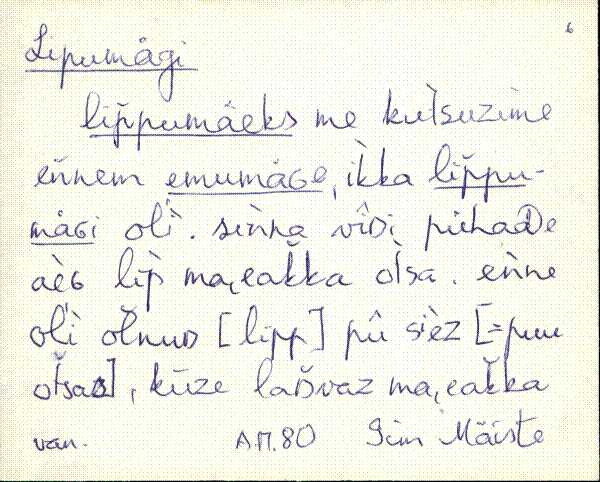 6
Lipumägi
lip̀pumäeks me kut̀suzime
eǹnem emumäGe, ik̀ka lip̀pu-
mäGi oli. siǹna vîDi pühaDe
aèG lip̀ ma,eak̀ka ot̀sa. eǹne
oli oľnuD [lipp] pū sièz [=puu
otsas], kūze laDvaz ma,eak̀ka
van. A.Π.80 Siim Mäiste